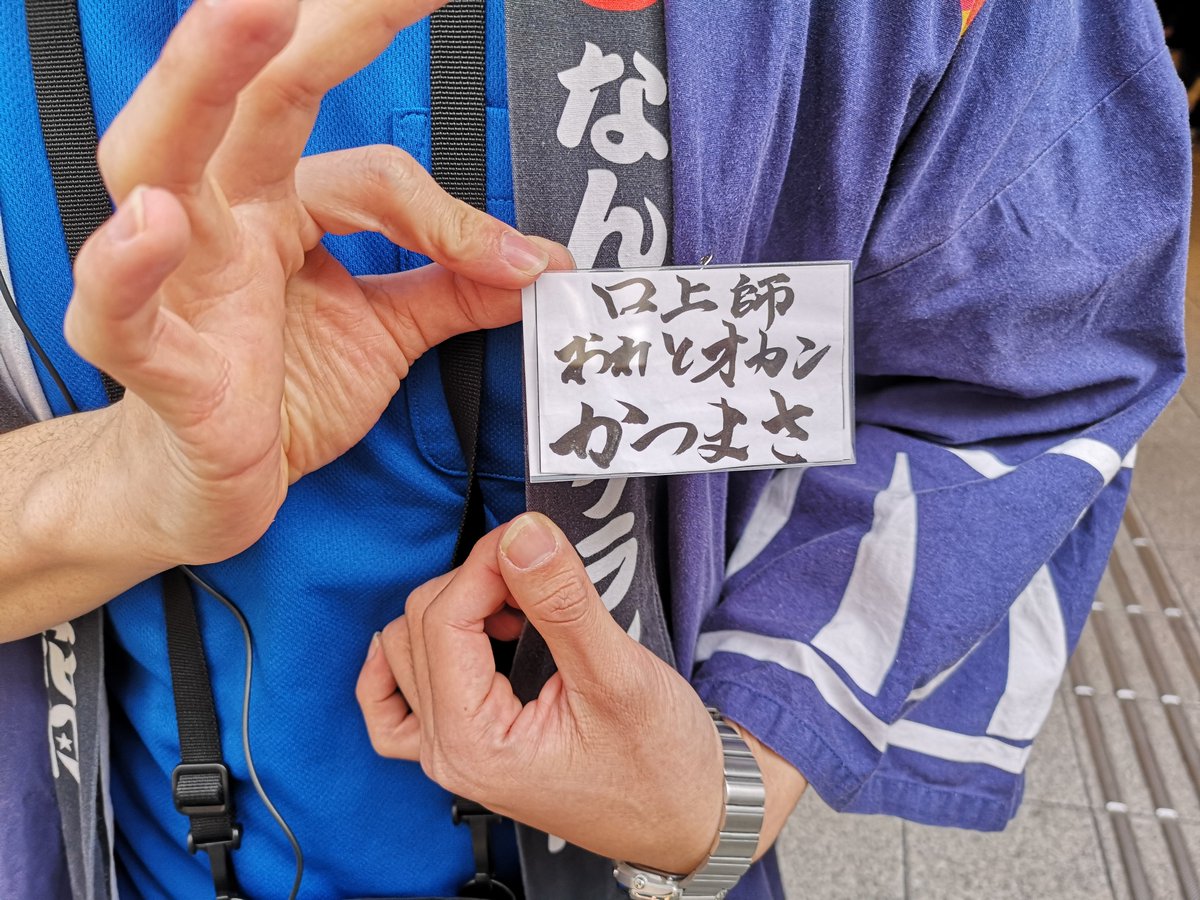 なん
口上師
おれとオカン
かつまさ